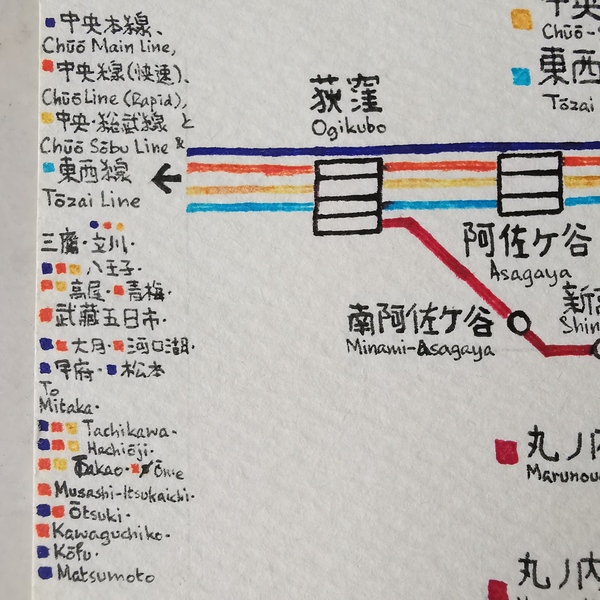 中央本線、
Chūō Main Line,
中央線(快速)、
Chūō Line (Rapid),
中央・総武線 と
Chūō Sōbu Line &
東西線
Tōzai Line
三鷹・立川・
八王子・
高尾・青梅・
武蔵五日市・
大月・河口湖・
甲府・松本
To
Mitaka・
Tachikawa・
Hachiōji・
Takao・Ōme
Musashi-Itsukaichi・
Ōtsuki・
Kawaguchiko・
Kōfu・
Matsumoto
荻窪
Ogikubo
阿佐ケ谷
Asagaya
南阿佐ケ谷
Minami-Asagaya
新高
Shin
中央
Chūō-
東西
Tōzai
丸ノ内
Marunou
丸ノ内